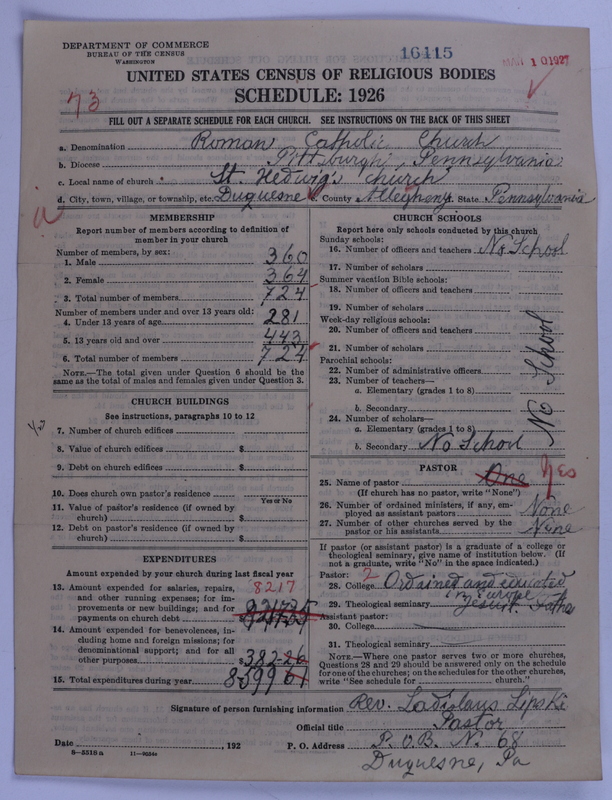 DEPARTMENT OF COMMERCE
BUREAU OF THE CENSUS
WASHINGTON
16115
MAR 10 1927
UNITED STATES CENSUS OF RELIGIOUS BODIES
SCHEDULE: 1926
73
FILL OUT A SEPARATE SCHEDULE FOR EACH CHURCH. SEE INSTRUCTIONS ON THE BACK OF THIS SHEET
a. Denomination Roman Catholic Church
b. Diocese Pittsburgh, Pennsylvania
c. Local name of church St. Hedwig's Church
d. City, town, village, or township, etc. Duquesne e. County Allegheny State Pennsylvania
MEMBERSHIP
Report number of members according to definition of
member in your church
Number of members, by sex:
1. Male 360
2. Female 364
3. Total number of members 724
Number of members under and over 13 years old:
4. Under 13 years of age 281
5. 13 years old and over 443
6. Total number of members 724
NOTE.—The total given under Question 6 should be
the same as the total of males and females given under Question 3.
CHURCH BUILDINGS
See instructions, paragraphs 10 to 12
7. Number of church edifices
8. Value of church edifices $
9. Debt on church edifices $
10. Does church own pastor's residence
Yes or No
11. Value of pastor's residence (if owned by
church) $
12. Debt on pastor's residence (if owned by
church) $
EXPENDITURES
Amount expended by your church during last fiscal year
13. Amount expended for salaries, repairs, 8217
and other running expenses; for im-
provements or new buildings; and for
payments on church debt
14. Amount expended for benevolences, in-
cluding home and foreign missions; for
denominational support; and for all
other purposes $ 382.26
15. Total expenditures during year 8599 61
CHURCH SCHOOLS
Report here only schools conducted by this church
Sunday schools:
16. Number of officers and teachers No School
17. Number of scholars
Summer vacation Bible schools:
18. Number of officers and teachers
19. Number of scholars
Week-day religious schools:
20. Number of officers and teachers
21. Number of scholars
Parochial schools:
22. Number of administrative officers
23. Number of teachers—
a. Elementary (grades 1 to 8)
b. Secondary
24. Number of scholars—
a. Elementary (grades 1 to 8)
b. Secondary No School
No School
PASTOR
25. Name of pastor One Yes
(If church has no pastor, write "None")
26. Number of ordained ministers, if any, em-
ployed as assistant pastors None
27. Number of other churches served by the
pastor or his assistants None
If pastor (or assistant pastor) is a graduate of a college or
theological seminary, give name of institution below. (If
not a graduate, write "No" in the space indicated.)
Pastor: 2
28. College Ordained and educated
in Europe
29. Theological seminary Jesuit Father
Assistant pastor:
30. College
31. Theological seminary
NOTE.—Where one pastor serves two or more churches,
Questions 28 and 29 should be answered only on the schedule
for one of the churches; on the schedules for the other churches,
write "See schedule for church."
Signature of person furnishing information Rev. Ladislaus Lipski
Official title Pastor
Date , 192 P. O. Address P.O.B. N. 68
Duquesne, Pa
8—5518 a